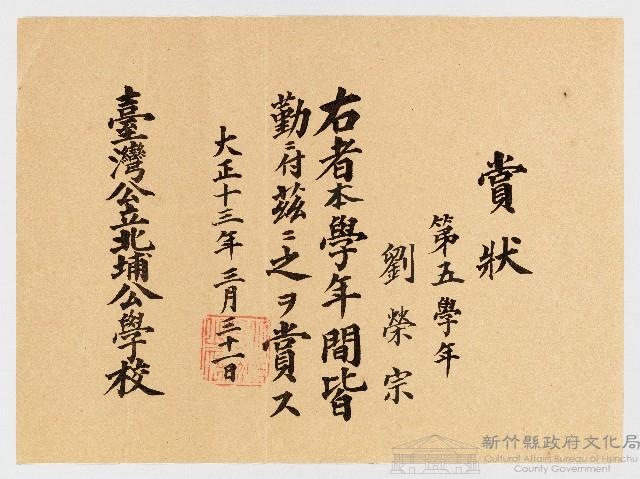 賞狀
第五學年
劉榮宗
右者本學年間皆
勤ニ付茲ニ之ヲ賞ス
大正十三年三月三十一日
臺灣公立北埔公學校
新竹縣政府文化局
Cultural Affairs Bureau of Hsinchu
County Government